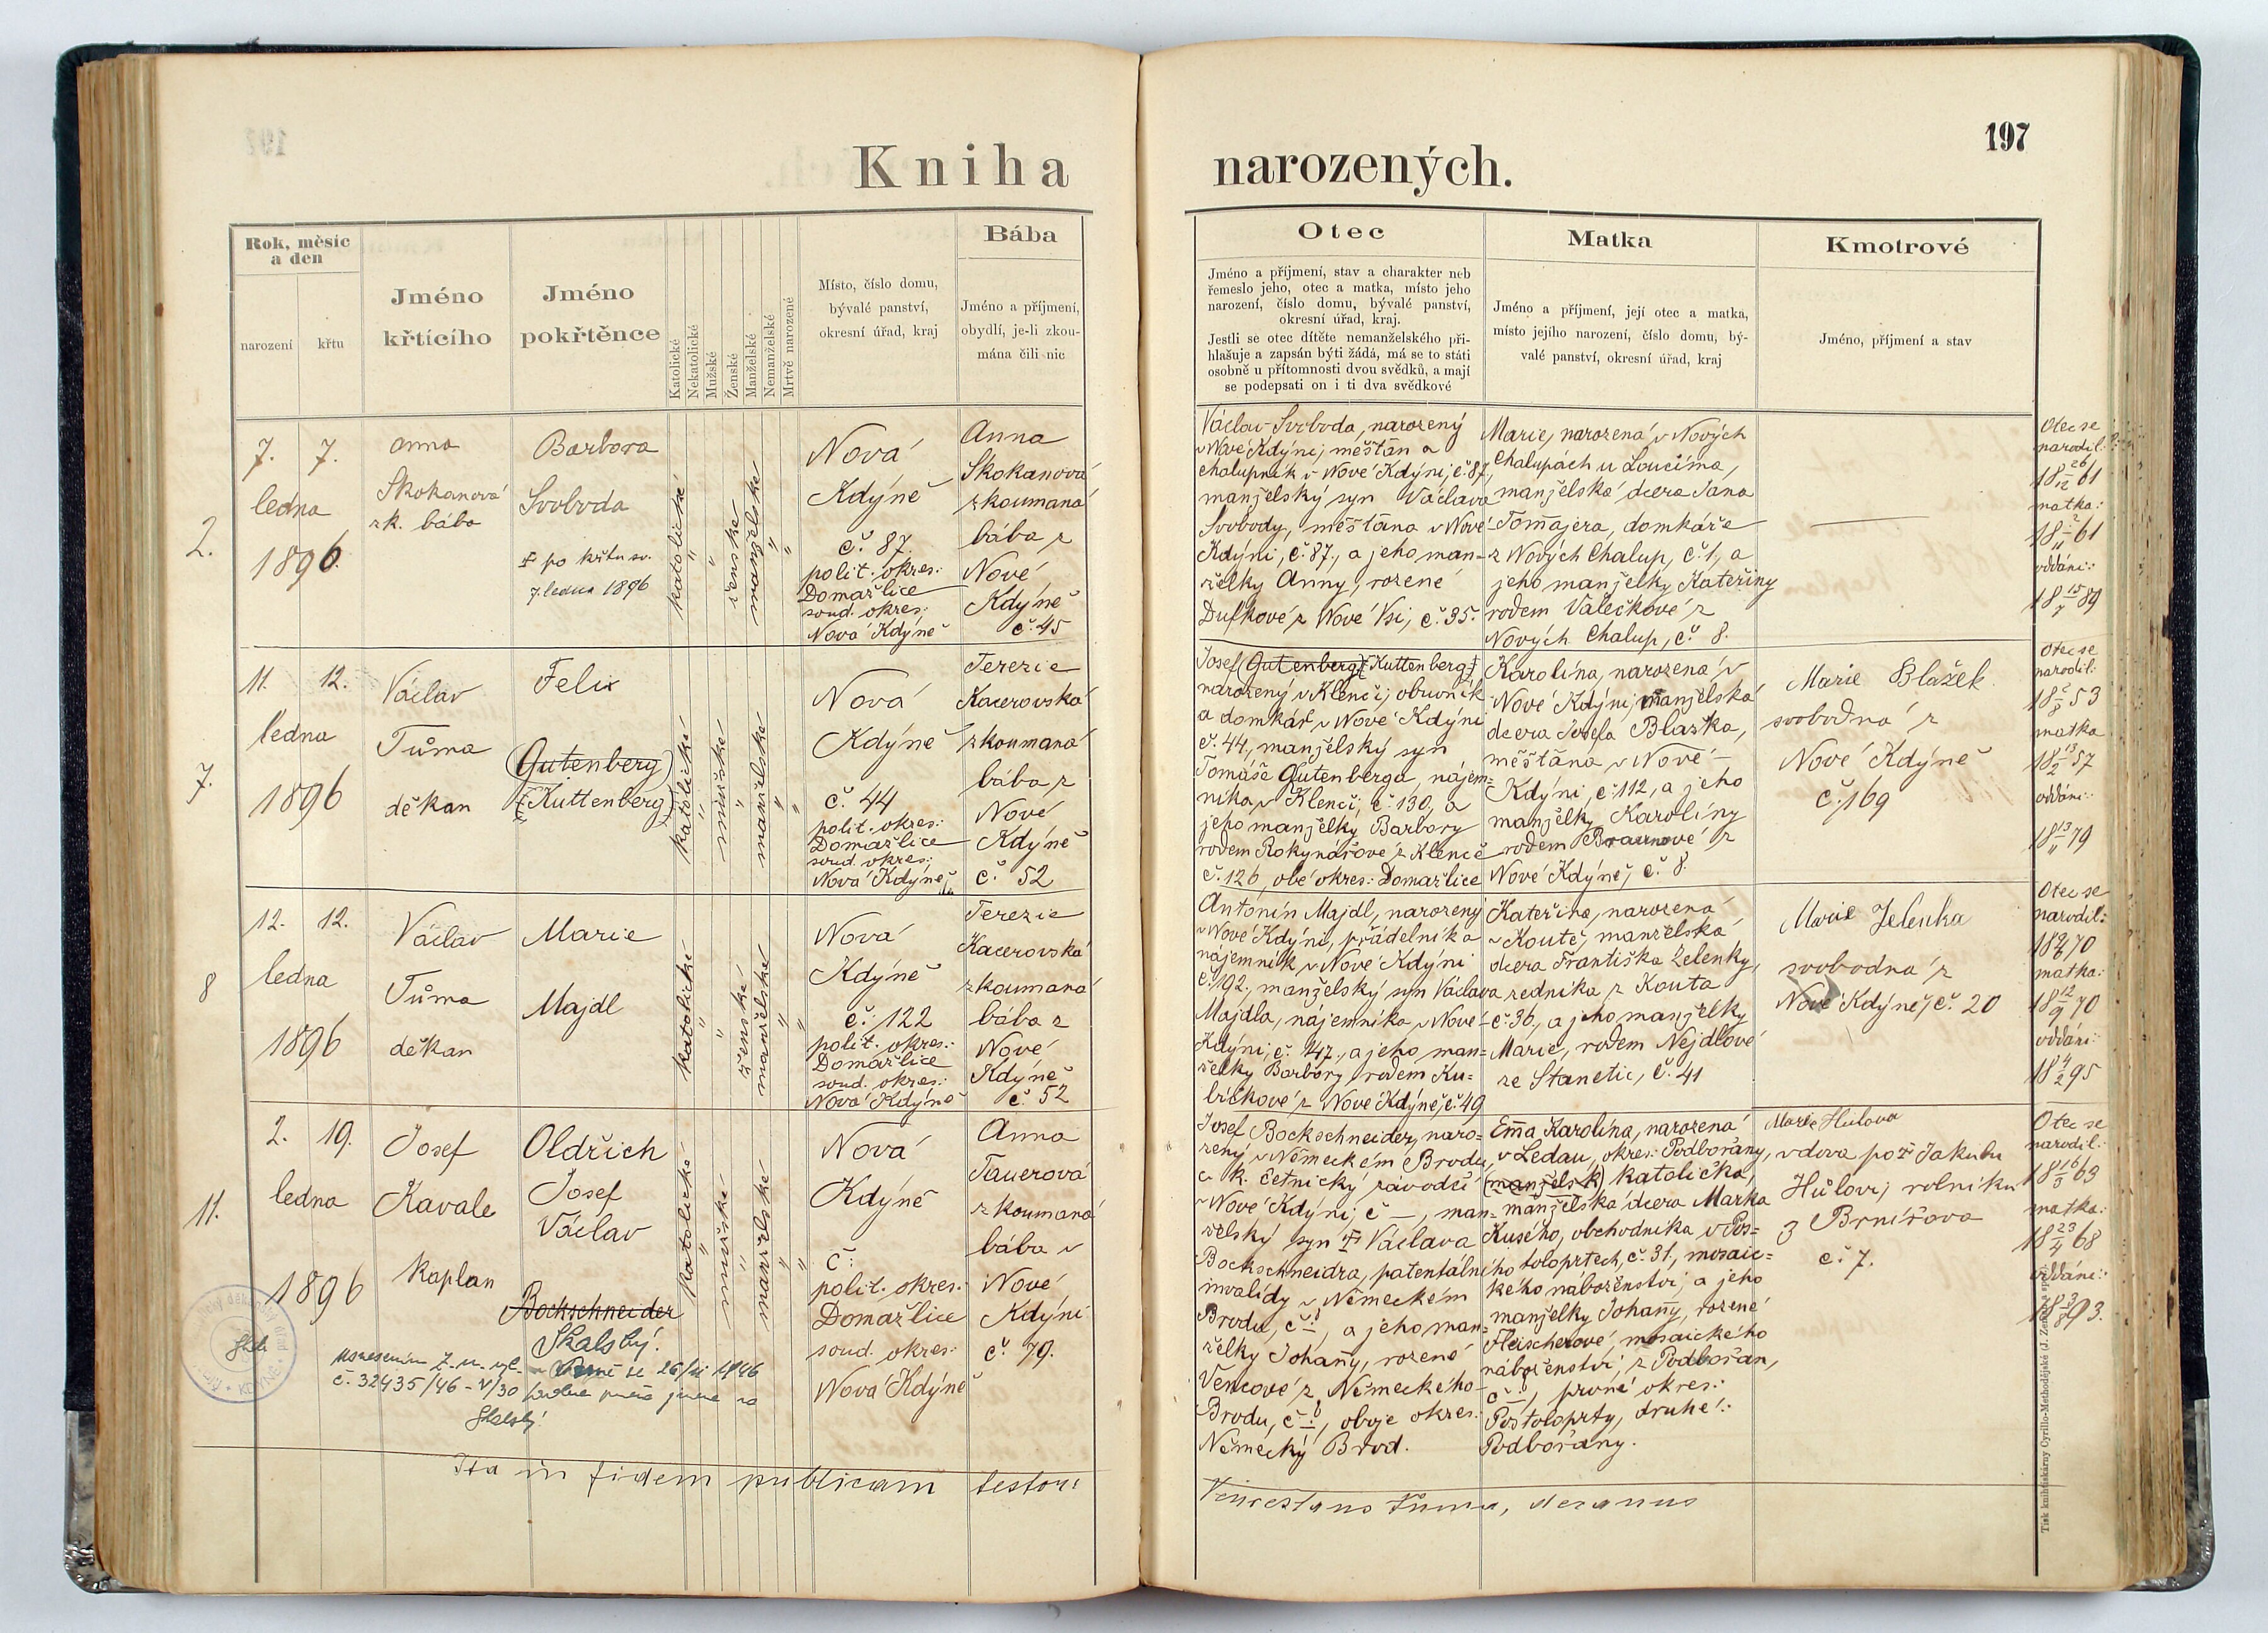 197
Kniha narozených.
Rok, měsíc a den
narození
křtu
Jméno křtícího
Jméno pokřtěnce
Katolické
Nekatolické
Mužské
Ženské
Manželské
Nemanželské
Mrtvě narozené
Místo, číslo domu,
bývalé panství,
okresní úřad, kraj
Bába
Jméno a příjmení,
obydlí, je-li zkou-
mána čili nic
Otec
Jméno a příjmení, stav a charakter neb
řemeslo jeho, otec a matka, místo jeho
narození, číslo domu, bývalé panství,
okresní úřad, kraj.
Jestli se otec dítěte nemanželského při-
hlašuje a zapsán býti žádá, má se to státi
osobně u přítomnosti dvou svědků, a mají
se podepsati on i ti dva svědkové
Matka
Jméno a příjmení, její otec a matka,
místo jejího narození, číslo domu, bý-
valé panství, okresní úřad, kraj
Kmotrové
Jméno, příjmení a stav
2.
7. 7.
ledna
1896.
Anna
Skokanová
zk. bába
Barbora
Svoboda
† po křtu sv.
7. ledna 1896
katolické
ženské
manželské
Nová
Kdýně
č. 87.
polit. okres.:
Domažlice
soud. okres.:
Nová Kdýně
Anna
Skokanová
zkoumaná
bába z
Nové
Kdýně
č. 45
Václav Svoboda, narozený
v Nové Kdýni, měšťan a
chalupník v Nové Kdýni, č. 87,
manželský syn Václava
Svobody, měšťana v Nové
Kdýni, č. 87., a jeho man-
želky Anny, rozené
Dufkové z Nové Vsi, č. 35.
Marie, narozená v Nových
Chalupách u Loučíma,
manželská dcera Jana
Tomajera, domkáře
z Nových Chalup, č. 1, a
jeho manželky Kateřiny
rodem Valečkové z
Nových Chalup, č. 8.
Otec se
narodil:
18 26/12 61
matka:
18 2/11 61
oddáni:
18 15/7 89
7.
11. 12.
ledna
1896
Václav
Tůma
děkan
Felix
(Gutenberg)
(Kuttenberg)
katolické
mužské
manželské
Nová
Kdýně
č. 44
polit. okres.:
Domažlice
soud. okres.:
Nová Kdýně
Terezie
Kacerovská
zkoumaná
bába z
Nové
Kdýně
č. 52
Josef (Gutenberg) (Kuttenberg)
narozený v Klenčí, obuvník
a domkář v Nové Kdýni
č. 44, manželský syn
Tomáše Gutenberga, nájem=
níka v Klenčí, č. 130, a
jeho manželky Barbory
rodem Rokynařové z Klenče
č. 126, obé okres.: Domažlice
Karolína, narozená v
Nové Kdýni, manželská
dcera Josefa Blažka,
měšťana v Nové
Kdýni, č. 112, a jeho
manželky Karolíny
rodem Braunové z
Nové Kdýně, č. 8.
Marie Blažek
svobodná z
Nové Kdýně
č. 169
Otec se
narodil:
matka
18 13/2 57
oddáni:
18 13/11 79
8
12. 12.
ledna
1896
Václav
Tůma
děkan
Marie
Majdl
katolické
ženské
manželské
Nová
Kdýně
č. 122
polit. okres.:
Domažlice
soud. okres.:
Nová Kdýně
Terezie
Kacerovská
zkoumaná
bába z
Nové
Kdýně
č. 52
Antonín Majdl, narozený
v Nové Kdýni, přádelník a
nájemník v Nové Kdýni
č. 192, manželský syn Václava
Majdla, nájemníka v Nové
Kdýni, č. 147., a jeho man=
želky Barbory, rodem Ku=
bíčkové z Nové Kdýně, č. 49
Kateřina, narozená
v Koutě, manželská
dcera Františka Zelenky,
zedníka z Kouta
č. 36, a jeho manželky
Marie, rodem Nejdlové
ze Stanětic, č. 41
Marie Jelenka
svobodná z
Nové Kdýně, č. 20
Otec se
narodil:
matka:
18 12/9 70
oddáni:
18 4/2 95
11.
2. 19.
ledna
1896
Josef
Kavale
Kaplan
Oldřich
Josef
Václav
Bockschneider
Skalský!
č. 32435/46 - V/30
Skalský!
katolické
mužské
manželské
Nová
Kdýně
č:
polit. okres.:
Domažlice
soud. okres.:
Nová Kdýně
Anna
Tauerová
zkoumaná
bába v
Nové
Kdýni
č. 79.
Josef Bockschneider, naro=
zený v Německém Brodu,
c. k. četnický závodčí
v Nové Kdýni, č –, man=
želský syn † Václava
Bockschneidra, patentálního
invalidy v Německém
Brodu, č –, a jeho man=
želky Johany, rozené
Vencové z Německého
Brodu, č –, oboje okres.:
Německý Brod.
Ema Karolína, narozená
v Ledau, okres: Podbořany,
(manželsk) katolička,
manželská dcera Marka
Kusého, obchodníka v Pos=
toloprtech, č. 31, mosaic=
kého náboženství, a jeho
manželky Johany, rozené
Fleischerové, mosaického
náboženství, z Podbořan,
č –, prvné okres.:
Postoloprty, druhé:
Podbořany.
Marie Hůlova
vdova po † Jakubu
Hůlovi, rolníku
z Brnířova
č. 7.
Otec se
narodil:
matka:
18 23/4 68
oddáni:
Ita in fidem publicam testor:
Venceslaus Tůma, decanus
Tisk knihtiskárny Cyrillo-Methodějské (J. Zeman a spol.)